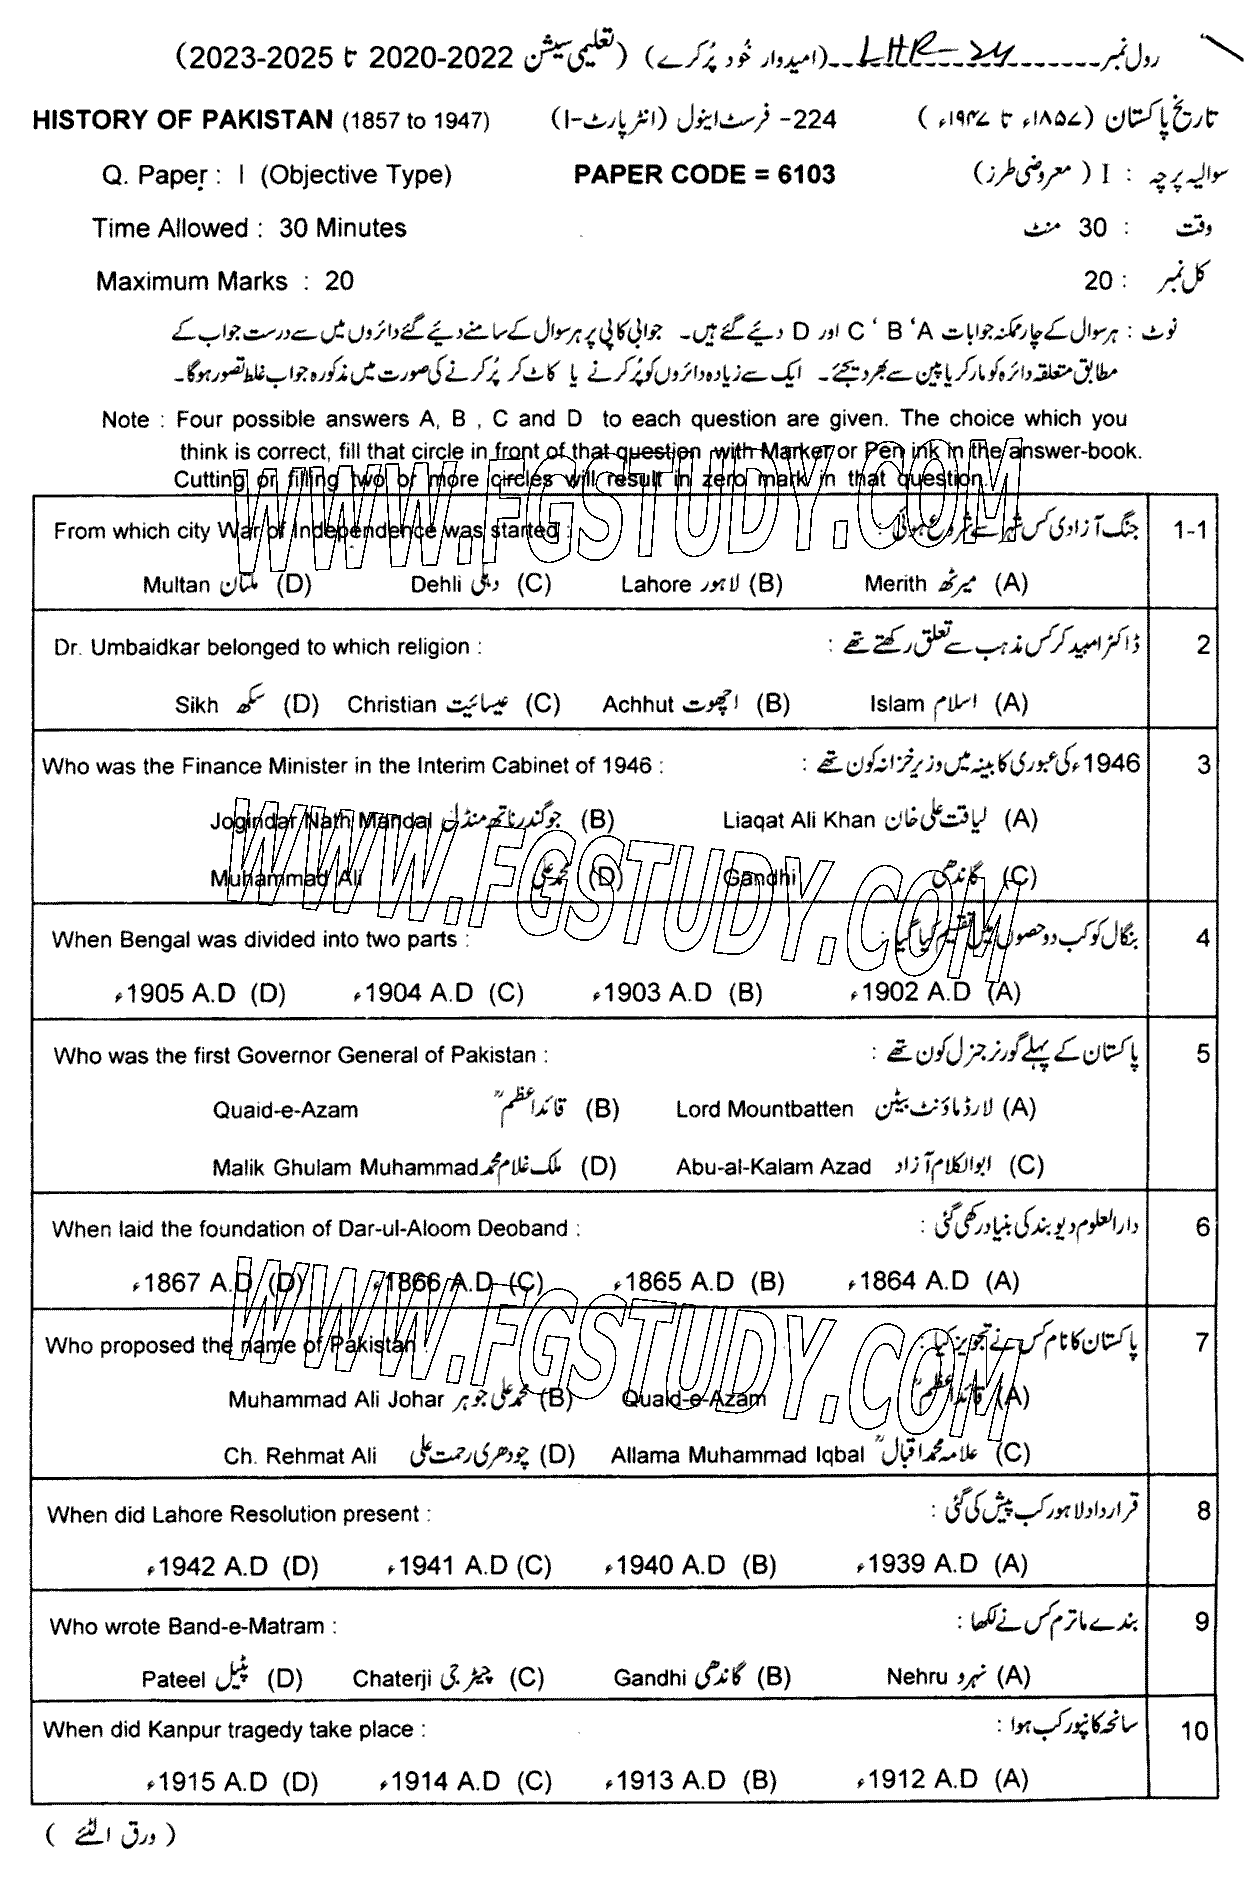 رول نمبر LHR-24 (امیدوار خُود پُر کرے) (تعلیمی سیشن 2022-2020 تا 2025-2023)
HISTORY OF PAKISTAN (1857 to 1947) 224- فرسٹ اینول (انٹر پارٹ-I) تاریخ پاکستان (۱۸۵۷ء تا ۱۹۴۷ء)
Q. Paper : I (Objective Type) PAPER CODE = 6103 سوالیہ پرچہ : I (معروضی طرز)
Time Allowed : 30 Minutes وقت : 30 منٹ
Maximum Marks : 20 کل نمبر : 20
نوٹ : ہر سوال کے چار ممکنہ جوابات A، B، C اور D دیئے گئے ہیں۔ جوابی کاپی پر ہر سوال کے سامنے دیئے گئے دائروں میں سے درست جواب کے
مطابق متعلقہ دائرہ کو مارکر یا پین سے بھر دیجئے۔ ایک سے زیادہ دائروں کو پُر کرنے یا کاٹ کر پُر کرنے کی صورت میں مذکورہ جواب غلط تصور ہوگا۔
Note : Four possible answers A, B , C and D to each question are given. The choice which you
think is correct, fill that circle in front of that question with Marker or Pen ink in the answer-book.
Cutting or filling two or more circles will result in zero mark in that question.
WWW.FGSTUDY.COM
From which city War of Independence was started : جنگ آزادی کس شہر سے شروع ہوئی : 1-1
Multan ملتان (D) Dehli دہلی (C) Lahore لاہور (B) Merith میرٹھ (A)
Dr. Umbaidkar belonged to which religion : ڈاکٹر امبیدکر کس مذہب سے تعلق رکھتے تھے : 2
Sikh سکھ (D) Christian عیسائیت (C) Achhut اچھوت (B) Islam اسلام (A)
Who was the Finance Minister in the Interim Cabinet of 1946 : 1946ء کی عبوری کابینہ میں وزیر خزانہ کون تھے : 3
Jogindar Nath Mandal جوگندر ناتھ منڈل (B) Liaqat Ali Khan لیاقت علی خان (A)
WWW.FGSTUDY.COM
Muhammad Ali محمد علی (D) Gandhi گاندھی (C)
When Bengal was divided into two parts : بنگال کو کب دو حصوں میں تقسیم کیا گیا : 4
1905 A.D ء (D) 1904 A.D ء (C) 1903 A.D ء (B) 1902 A.D ء (A)
Who was the first Governor General of Pakistan : پاکستان کے پہلے گورنر جنرل کون تھے : 5
Quaid-e-Azam قائد اعظمؒ (B) Lord Mountbatten لارڈ ماؤنٹ بیٹن (A)
Malik Ghulam Muhammad ملک غلام محمد (D) Abu-al-Kalam Azad ابوالکلام آزاد (C)
When laid the foundation of Dar-ul-Aloom Deoband : دارالعلوم دیوبند کی بنیاد رکھی گئی : 6
1867 A.D ء (D) 1866 A.D ء (C) 1865 A.D ء (B) 1864 A.D ء (A)
WWW.FGSTUDY.COM
Who proposed the name of Pakistan : پاکستان کا نام کس نے تجویز کیا : 7
Muhammad Ali Johar محمد علی جوہر (B) Quaid-e-Azam قائد اعظمؒ (A)
Ch. Rehmat Ali چودھری رحمت علی (D) Allama Muhammad Iqbal علامہ محمد اقبالؒ (C)
When did Lahore Resolution present : قرارداد لاہور کب پیش کی گئی : 8
1942 A.D ء (D) 1941 A.D ء (C) 1940 A.D ء (B) 1939 A.D ء (A)
Who wrote Band-e-Matram : بندے ماترم کس نے لکھا : 9
Pateel پٹیل (D) Chaterji چیٹر جی (C) Gandhi گاندھی (B) Nehru نہرو (A)
When did Kanpur tragedy take place : سانحہ کانپور کب ہوا : 10
1915 A.D ء (D) 1914 A.D ء (C) 1913 A.D ء (B) 1912 A.D ء (A)
(ورق الٹئے)